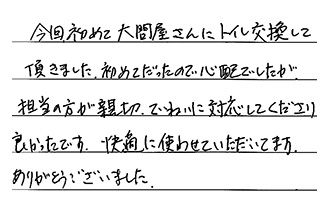 今回初めて大問屋さんにトイレ交換して
頂きました。初めてだったので心配でしたが、
担当の方が親切、ていねいに対応してくださり
良かったです。快適に使わせていただいてます。
ありがとうございました。